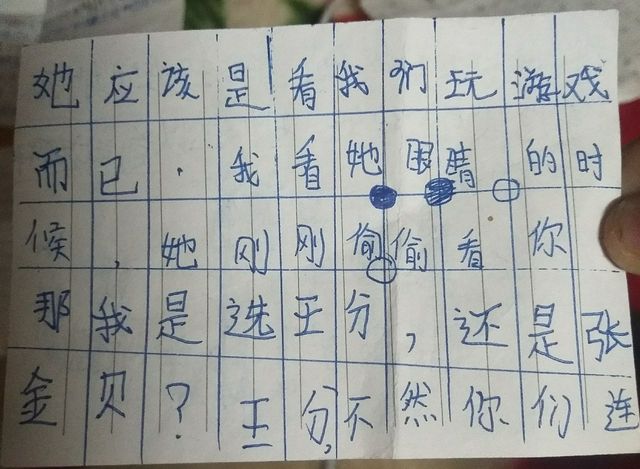 她应该是看我们玩游戏
而已.我看她眼睛的时
候,她刚刚偷偷看你
那我是选王分,还是张
金贝?王分,不然你们连